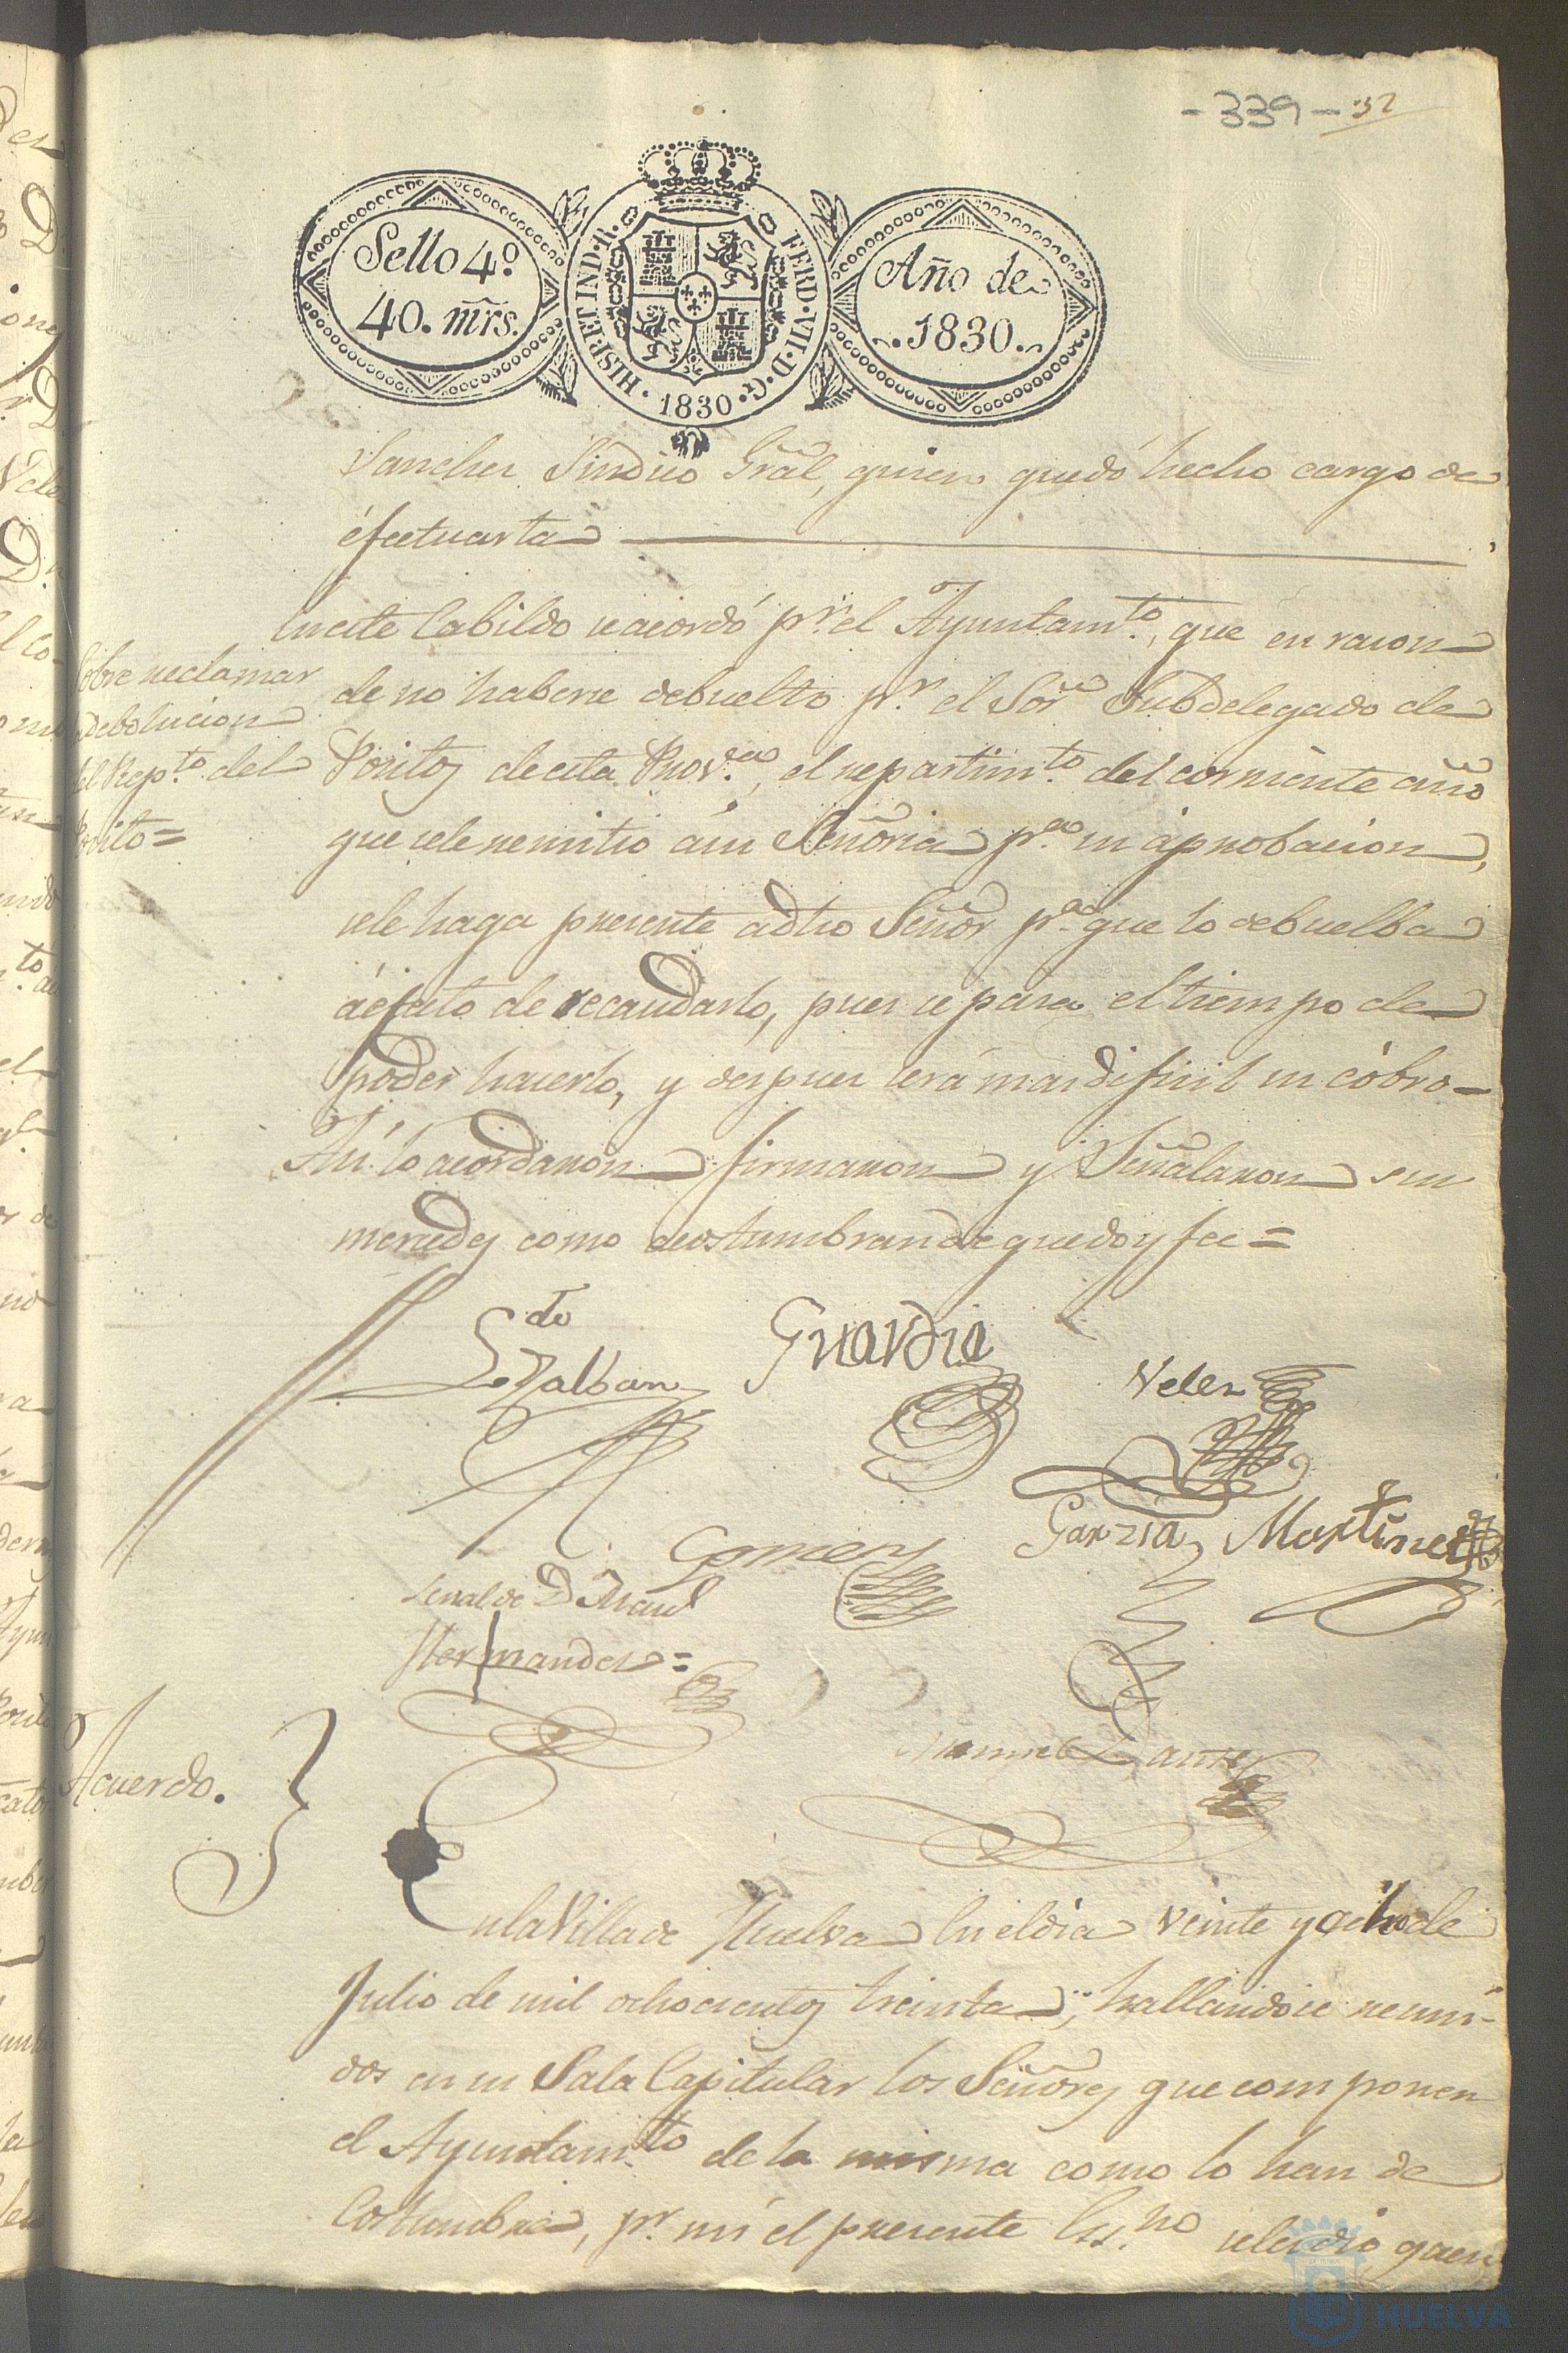 -339- 32
Sello 4º.
40. mr̃s.
HISP. ET IND. R.
FERD. VII. D. G.
1830
Año de
1830.
Sanchez Sindico Grãl, quien quedó hecho cargo de
éfectuarla
Sobre reclamar
la debolucion
del Rep.to del
Posito=
En este Cabildo se acordó p.r el Ayuntam.to, que en razon
de no haberse debuelto p.r el Sõr Subdelegado de
Positos de esta Prov.ca, el repartim.to del corriente año
que se le remitio a su Señoria p.a su aprobacion,
se le haga presente a dho Señor p.a que lo debuelba
á efecto de recaudarlo, pues se pasa el tiempo de
poder hacerlo, y despues será mas dificil su cóbro-
Asi lo acordaron firmaron y Señalaron sus
mercedes como acostumbran de que doy fee=
L.do Zalban
Guardia
Velez
Garzia
Martinez
Gomez
Señal de D. Man.l
Hernandez=
Manuel
Acuerdo.
En la Villa de Huelva En el dia veinte y ocho de
Julio de mil ochocientos treinta; hallandose reuni-
dos en su Sala Capitular los Señores que componen
el Ayuntam.to de la misma como lo han de
Costumbre, p.r mi el presente Ess.no se le dio quen
HUELVA